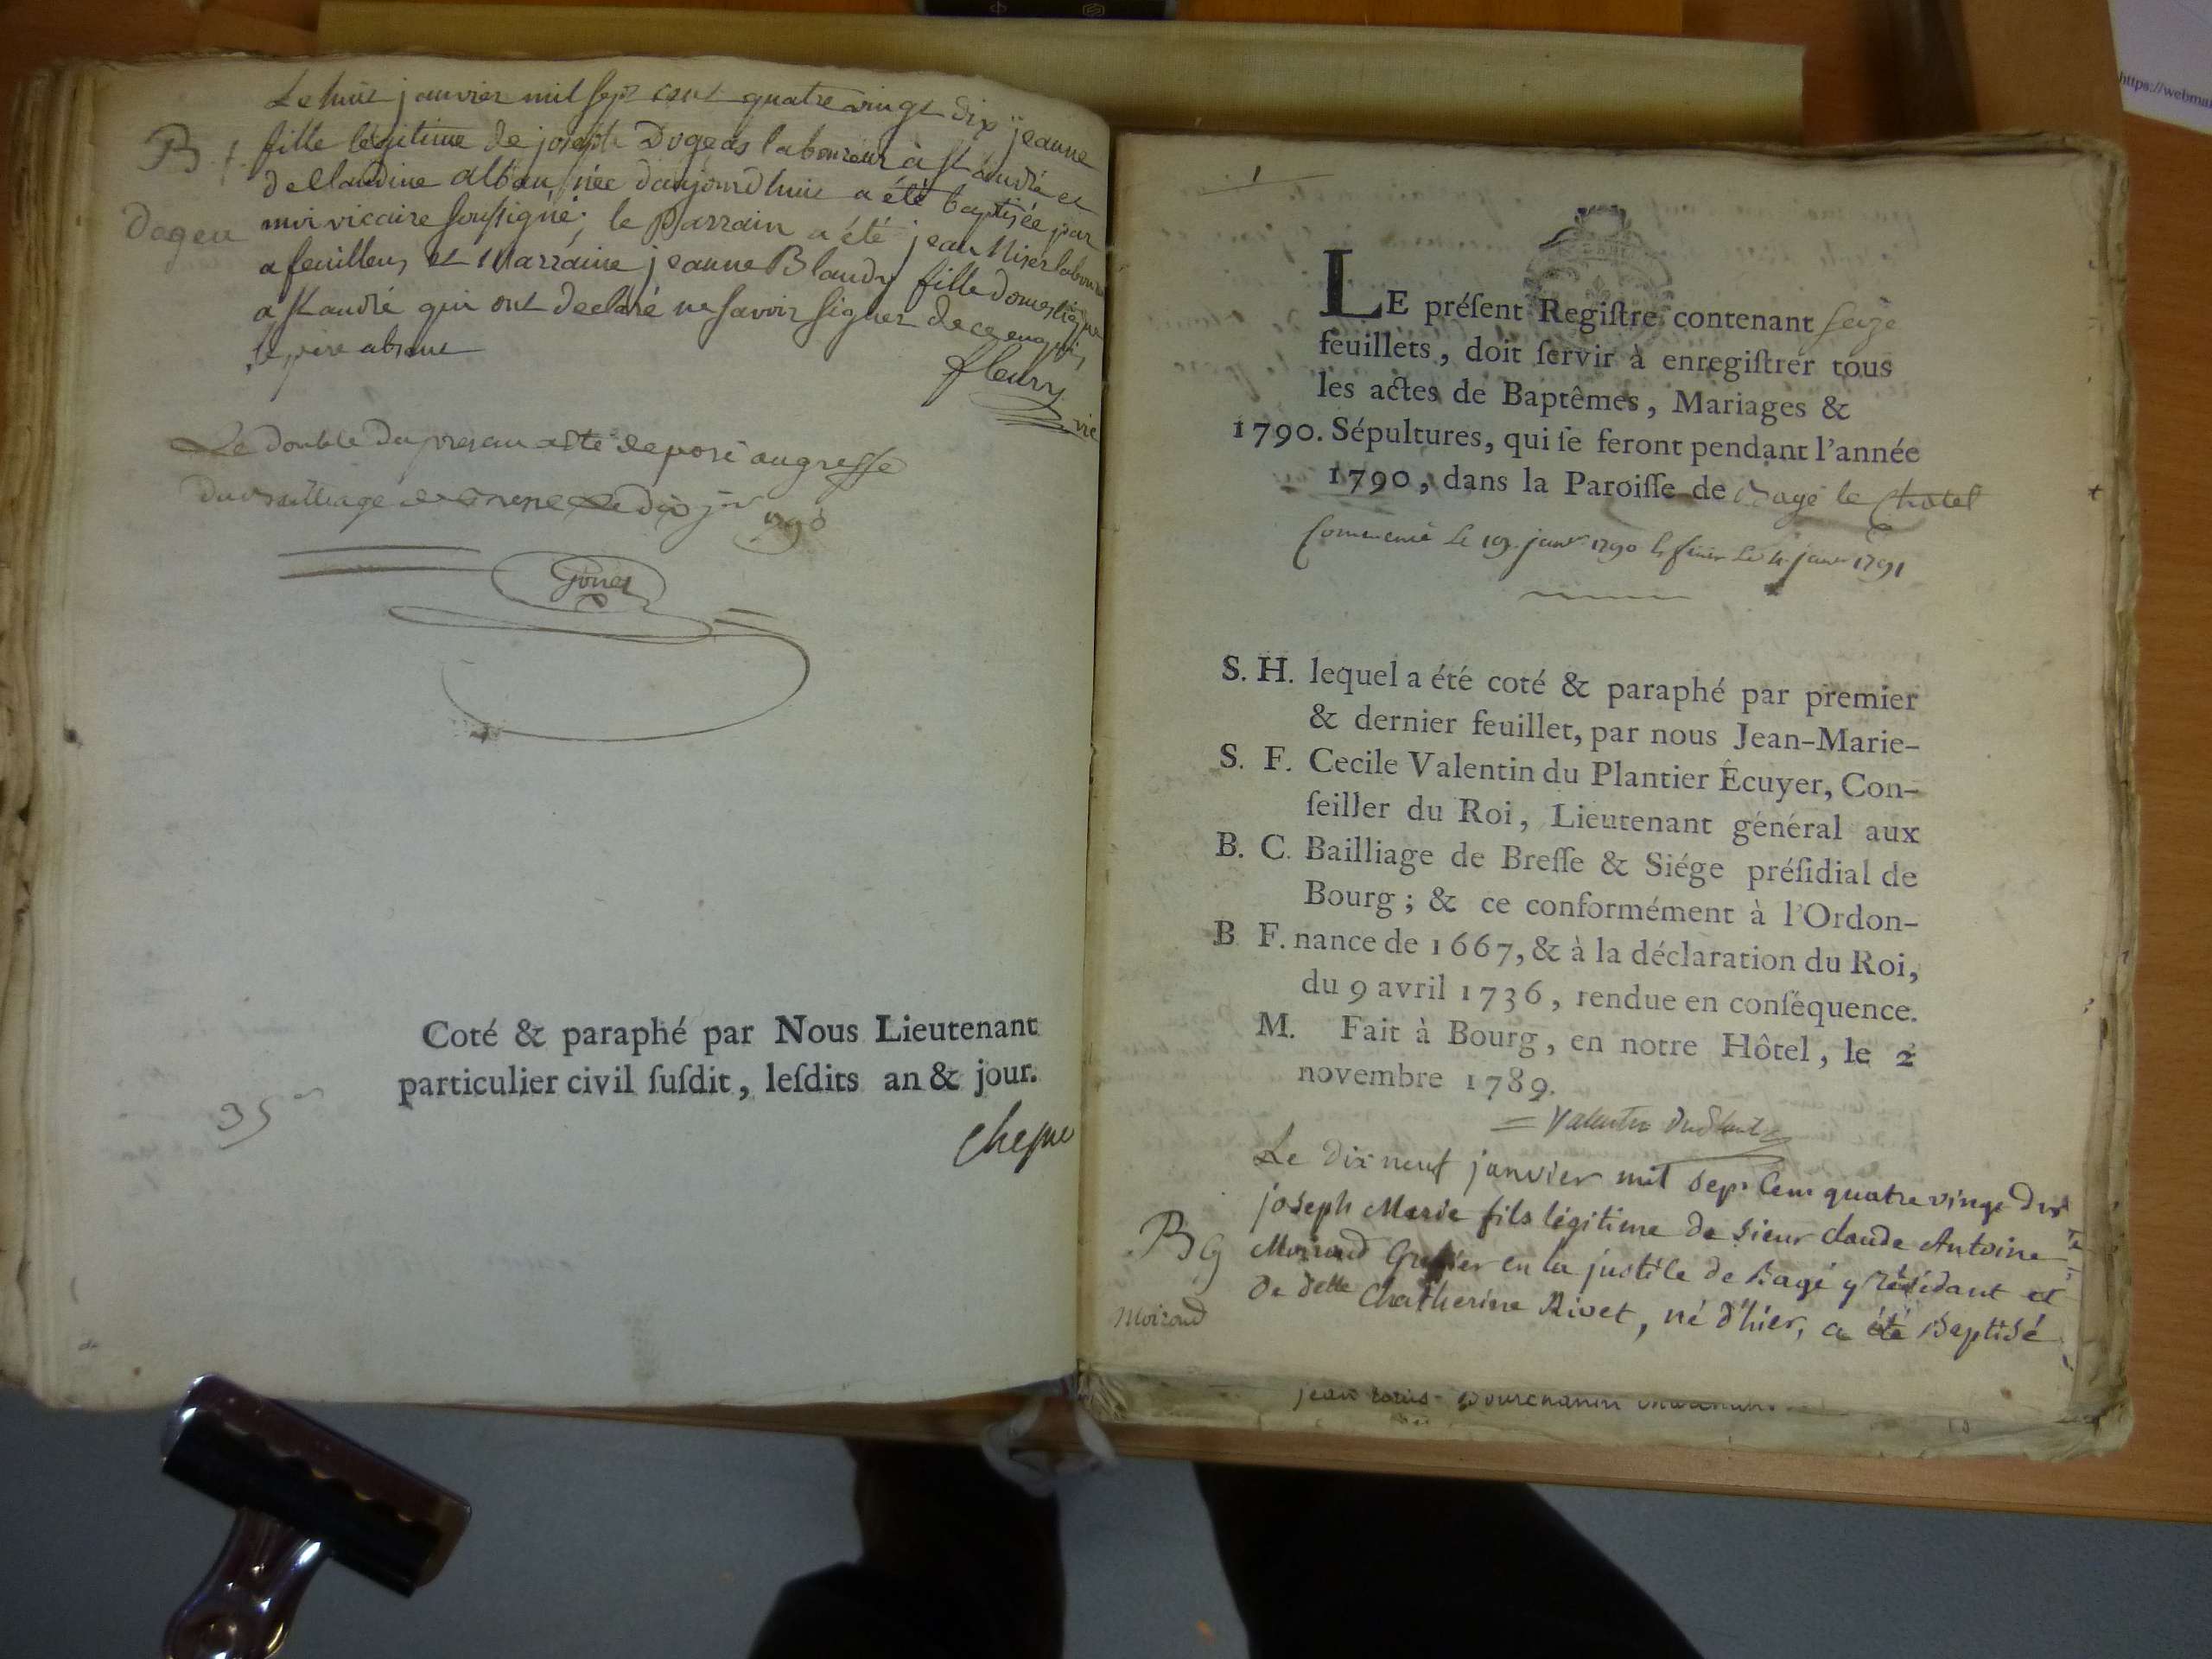 Le huit janvier mil sept cent quatre vingt dix jeanne
B. f. fille légitime de joseph Dogeas laboureur à St André et
de Claudine alban, née d'aujourd'huis a été baptisée par
Dogeu moi vicaire soussigné; le parrain a été jean Niser
a feuillens et Marraine jeanne Blandy fille domestique
a St andré qui ont declaré ne savoir signer de ce enquis,
le père absent
fleury
vic
Le double du presen a été deposé au greffe
du Bailliage de Bresse le dix jer
1790
Coté & paraphé par Nous Lieutenant
particulier civil ſuſdit, leſdits an & jour.
35
1
LE préſent Regiſtre contenant seize
feuillets, doit ſervir à enregiſtrer tous
les actes de Baptêmes, Mariages &
1790. Sépultures, qui ſe feront pendant l'année
1790, dans la Paroiſſe de Bagé le Chatel
Commencé le 19 janvr 1790 & finir le 4 janvr 1791
S. H. lequel a été coté & paraphé par premier
& dernier feuillet, par nous Jean-Marie-
S. F. Cecile Valentin du Plantier Écuyer, Con-
ſeiller du Roi, Lieutenant général aux
B. C. Bailliage de Breſſe & Siége préſidial de
Bourg; & ce conformément à l'Ordon-
B F. nance de 1667, & à la déclaration du Roi,
du 9 avril 1736, rendue en conſéquence.
M. Fait à Bourg, en notre Hôtel, le 2
novembre 1789.
Valentin Duplantier
Le dix neuf janvier mil sept Cent quatre vingt dix
joseph Marie fils légitime de sieur claude Antoine
BG Moiroud Greffier en la justice de Bagé y résidant et
De delle Chatherine Rivet, né d'hier, a été Baptisé
Moiroud
jean Louis
https://webmai